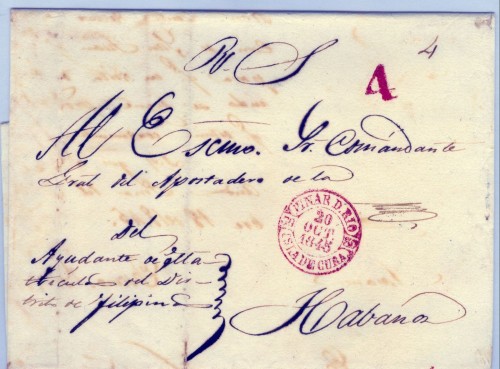 R. S. 4
4
Al Escmo. Sr. Comandante
Gral del Apostadero de la
PINAR D. RIO
20
OCT
1845
ISLA DE CUBA
del
Ayudante
del Dis-
trito de Filipina
Habana